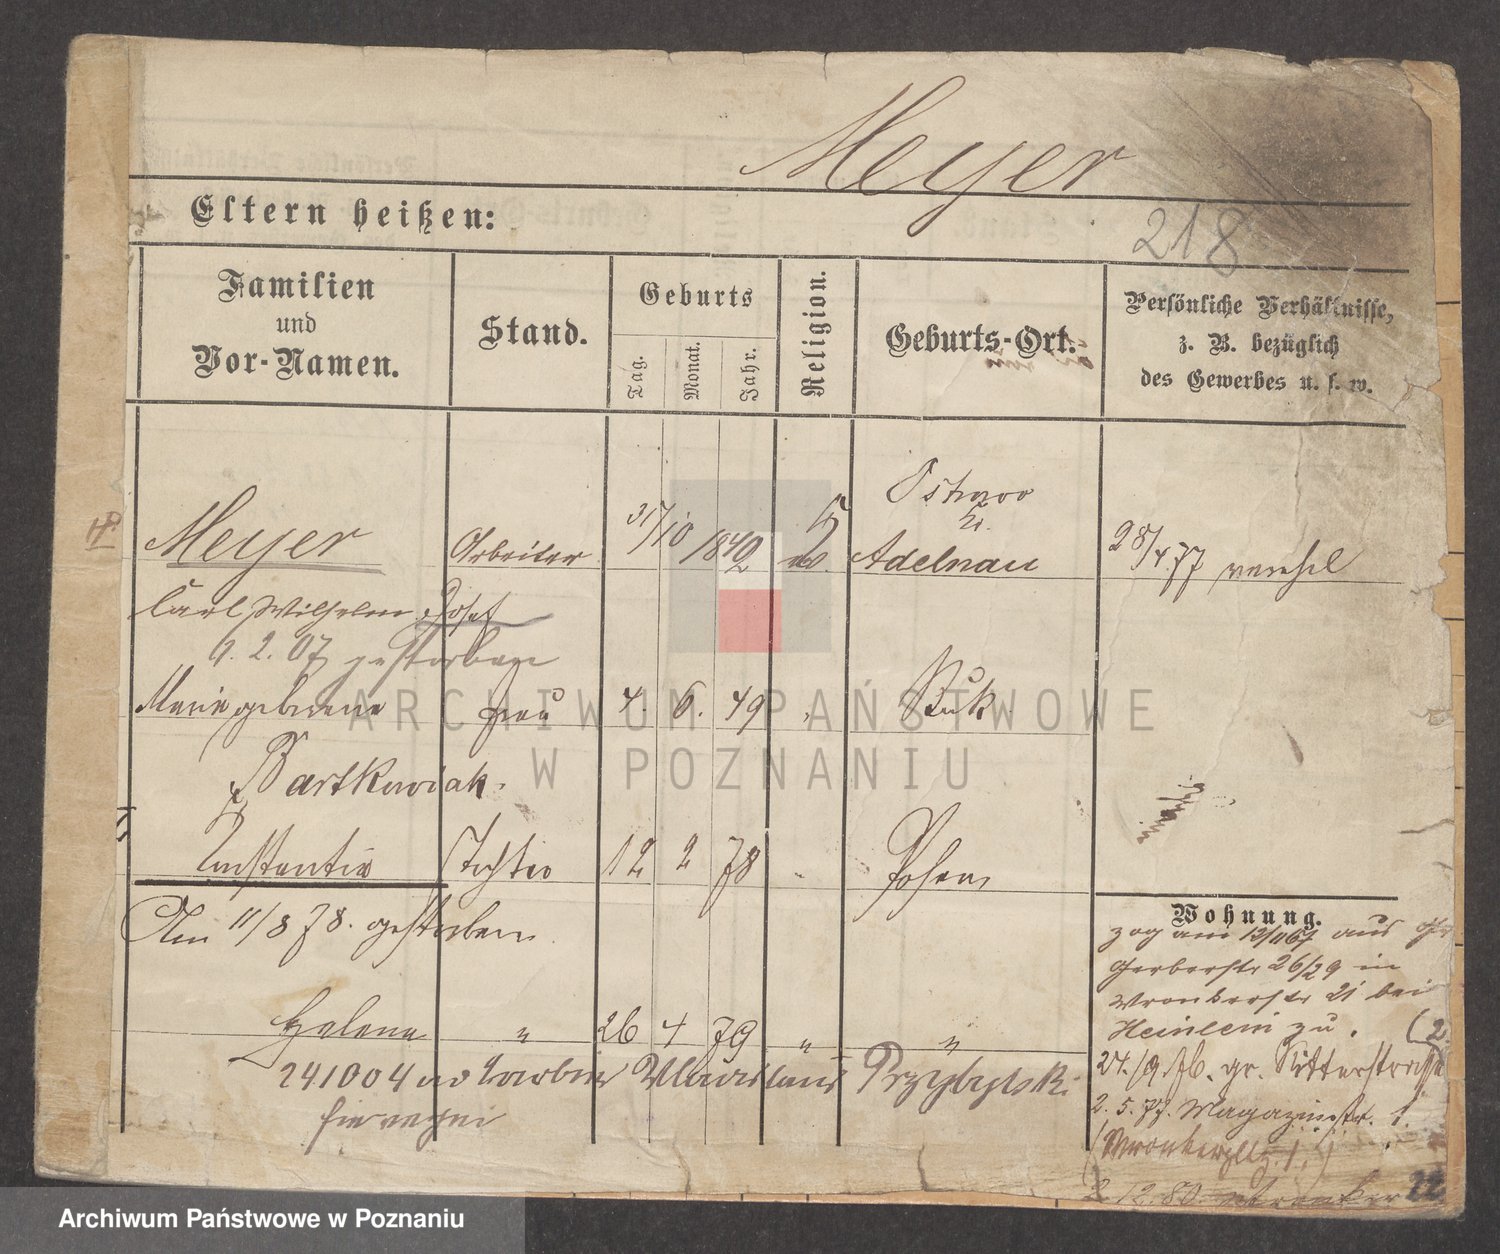 Meyer
Eltern heißen:
218
Familien
und
Vor-Namen.
Stand.
Geburts
Tag.
Monat.
Jahr.
Religion.
Geburts-Ort.
Persönliche Verhältnisse,
z. B. bezüglich
des Gewerbes u. s. w.
Meyer Arbeiter 31/10 1842 Ostrowo
Kr.
Adelnau 28/4.77
Carl Wilhelm Josef
9. 2. 07 gestorben
Marie geborene Frau 4. 6. 49 Buk
Bartkowiak.
Constantia Tochter 12 2 78 Posen
Am 11/8 78. gestorben
Helena " 26 4 79 " "
241004 Wladislaus Przybylski
Wohnung.
zog am 13/11 67 aus Gr
Gerberstr 26/29 in
Wronkerstr 21 bei
Heinlein zu. (2.
24./9 76. gr. Ritterstrasse
2. 5. 77. Magazinstr. 1.
(Wronkerplz. 1.)
2 12. 80 Wronker 22
ARCHIWUM PAŃSTWOWE
W POZNANIU
Archiwum Państwowe w Poznaniu